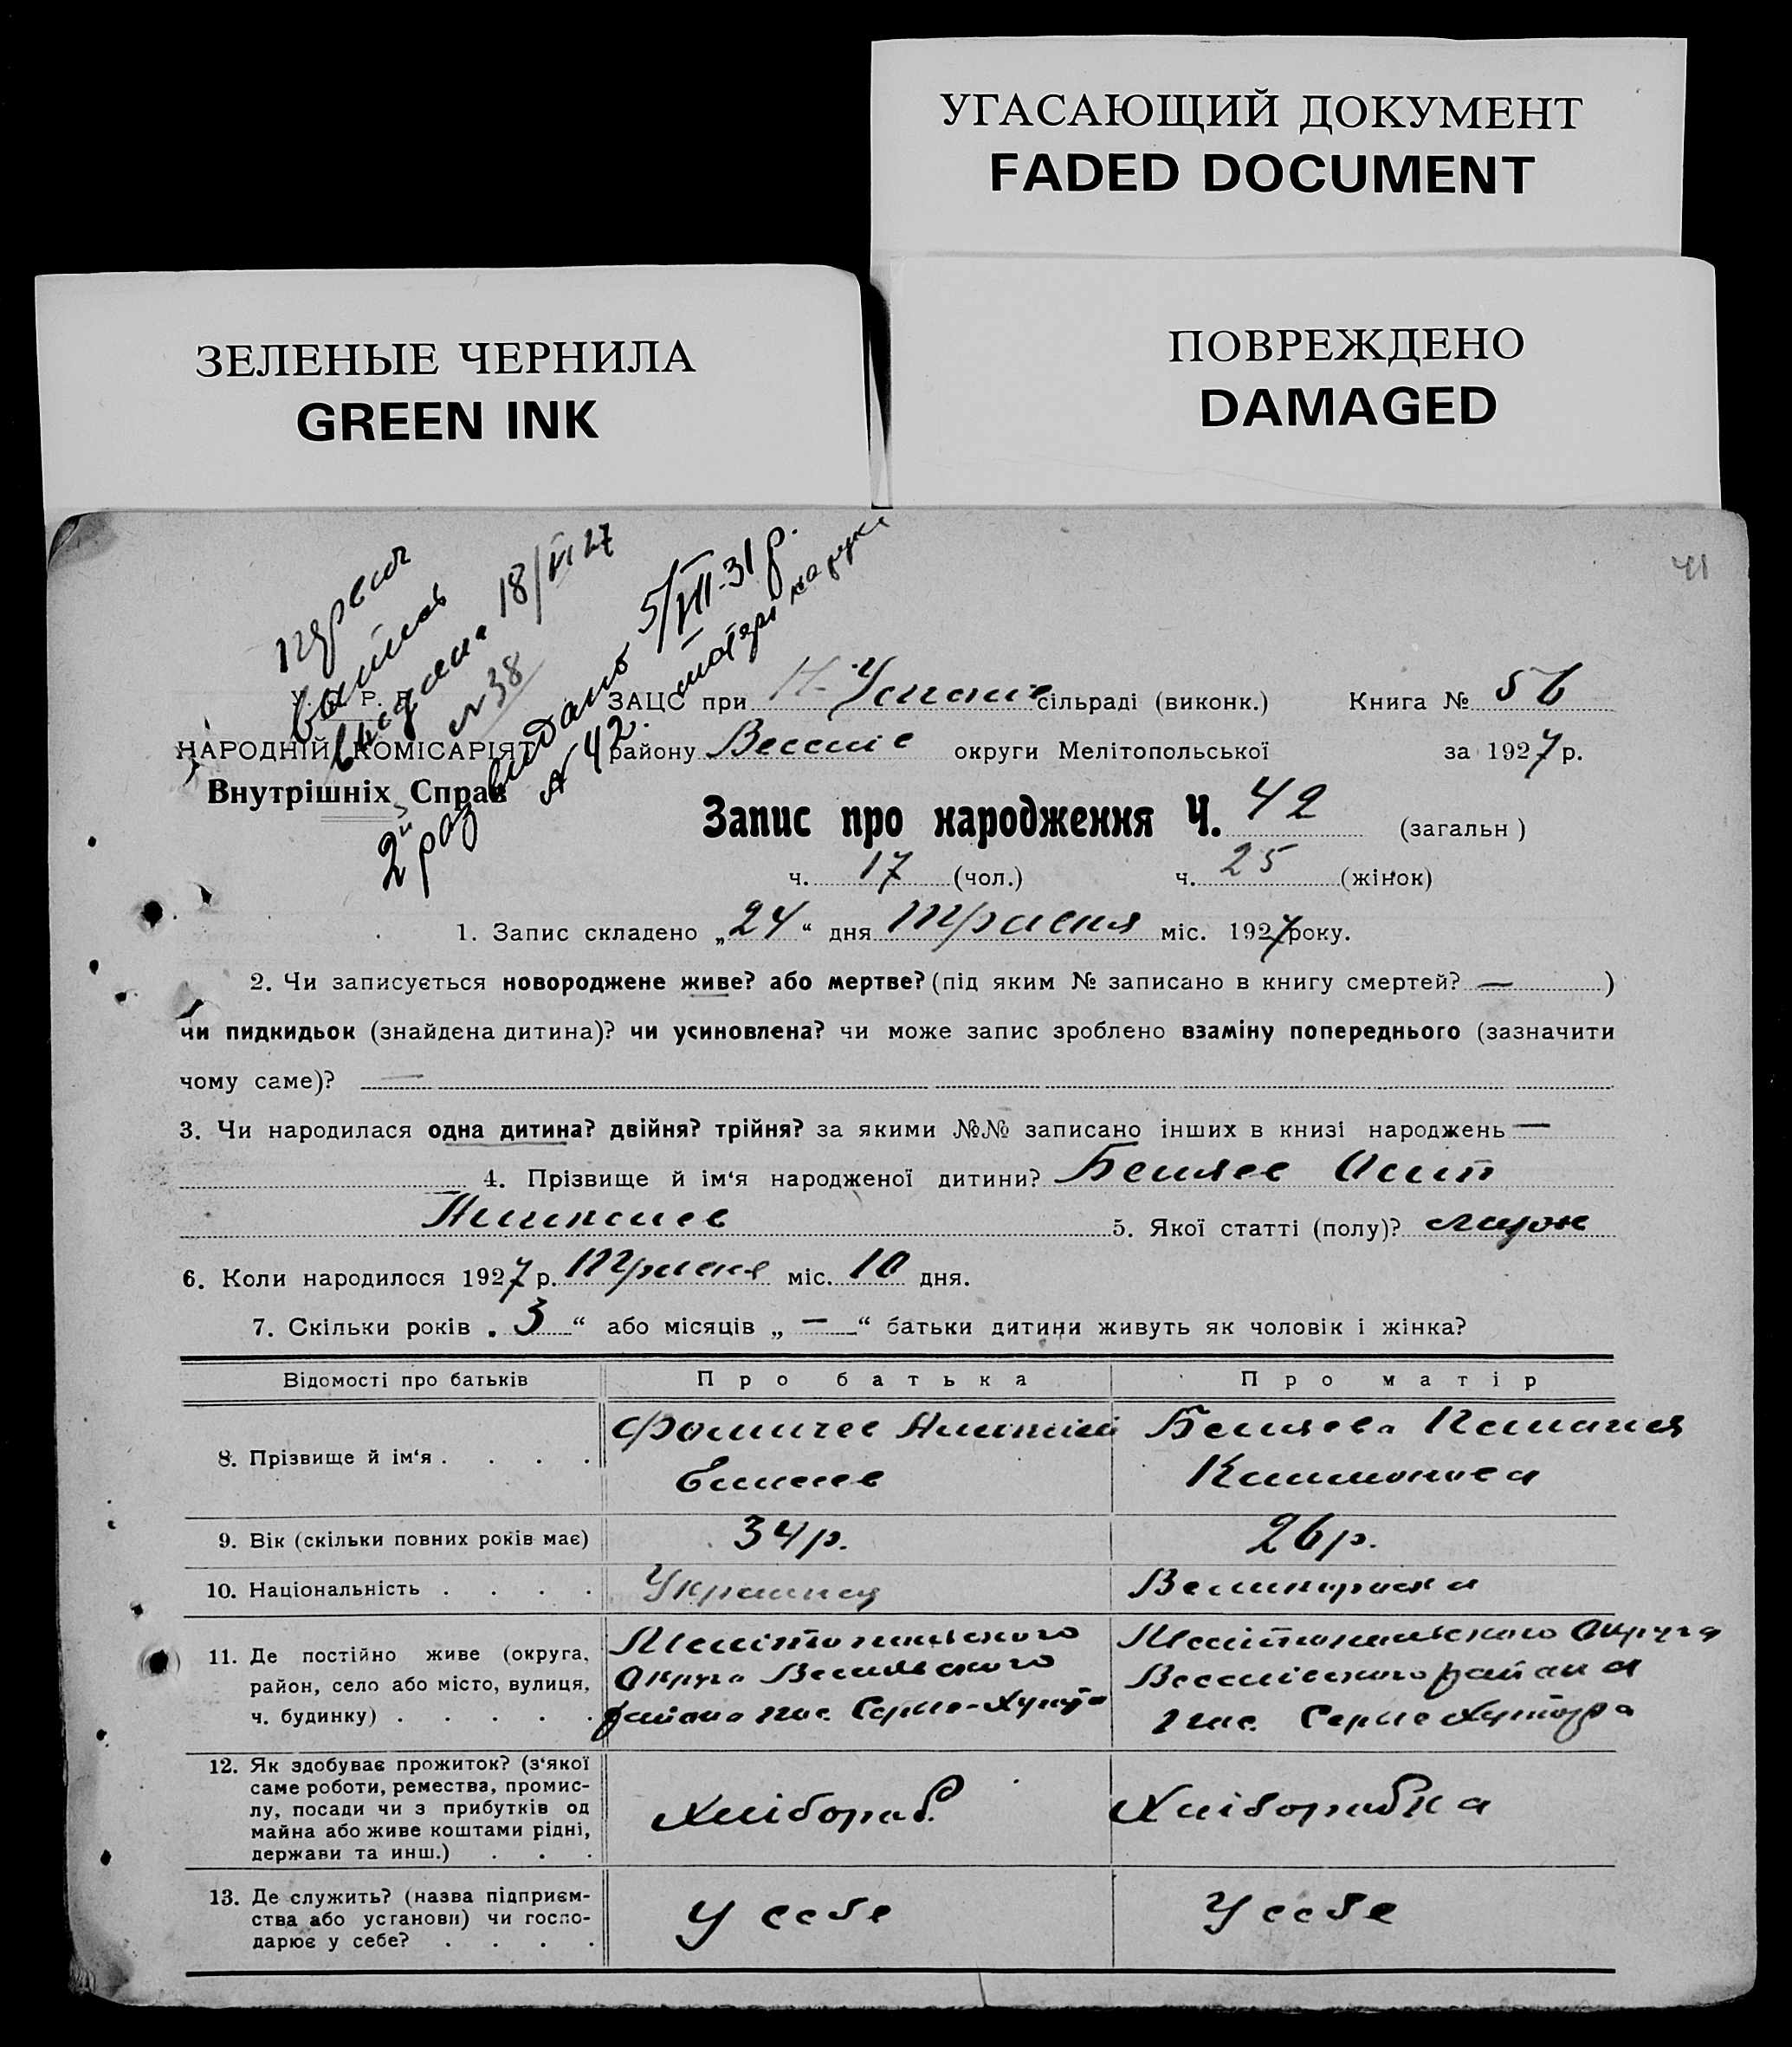 УГАСАЮЩИЙ ДОКУМЕНТ
FADED DOCUMENT
ЗЕЛЕНЫЕ ЧЕРНИЛА
GREEN INK
ПОВРЕЖДЕНО
DAMAGED
41
18/VI 27
№ 38
2й раз видано 5/VII-31 р.
№ 42.
У. Р. Р.
НАРОДНІЙ КОМІСАРІЯТ
Внутрішніх Справ
ЗАЦС при сільраді (виконк.) Книга № 56
району Веселів округи Мелітопольської за 1927 р.
Запис про народження Ч. 42 (загальн)
ч. 17 (чол.) ч. 25 (жінок)
1. Запис складено „24“ дня Травня міс. 1927 року.
2. Чи записується новороджене живе? або мертве? (під яким № записано в книгу смертей? — )
чи пидкидьок (знайдена дитина)? чи усиновлена? чи може запис зроблено взаміну попереднього (зазначити
чому саме)? —
3. Чи народилася одна дитина? двійня? трійня? за якими №№ записано інших в книзі народжень —
4. Прізвище й ім‘я народженої дитини? Беляев
5. Якої статті (полу)?
6. Коли народилося 1927 р. Травня міс. 10 дня.
7. Скільки років „3“ або місяців „—“ батьки дитини живуть як чоловік і жінка?
Відомості про батьків Про батька Про матір
8. Прізвище й ім‘я . . . . Фомичев Беляева
9. Вік (скільки повних років має) 34 р. 26 р.
10. Національність . . . . Украинец Великороска
11. Де постійно живе (округа, район, село або місто, вулиця, ч. будинку) . . . . .
Мелітопольского
Округа Весельского
района пос. Серне-Хутор
Мелітопольского Округа
Веселівского района
пос. Серне Хутора
12. Як здобуває прожиток? (з‘якої
саме роботи, ремества, промис-
лу, посади чи з прибутків од
майна або живе коштами рідні,
держави та инш.) . . .
Хлібороб. Хліборобка
13. Де служить? (назва підприєм-
ства або установи) чи госпо-
дарює у себе? . . . .
У себе У себе